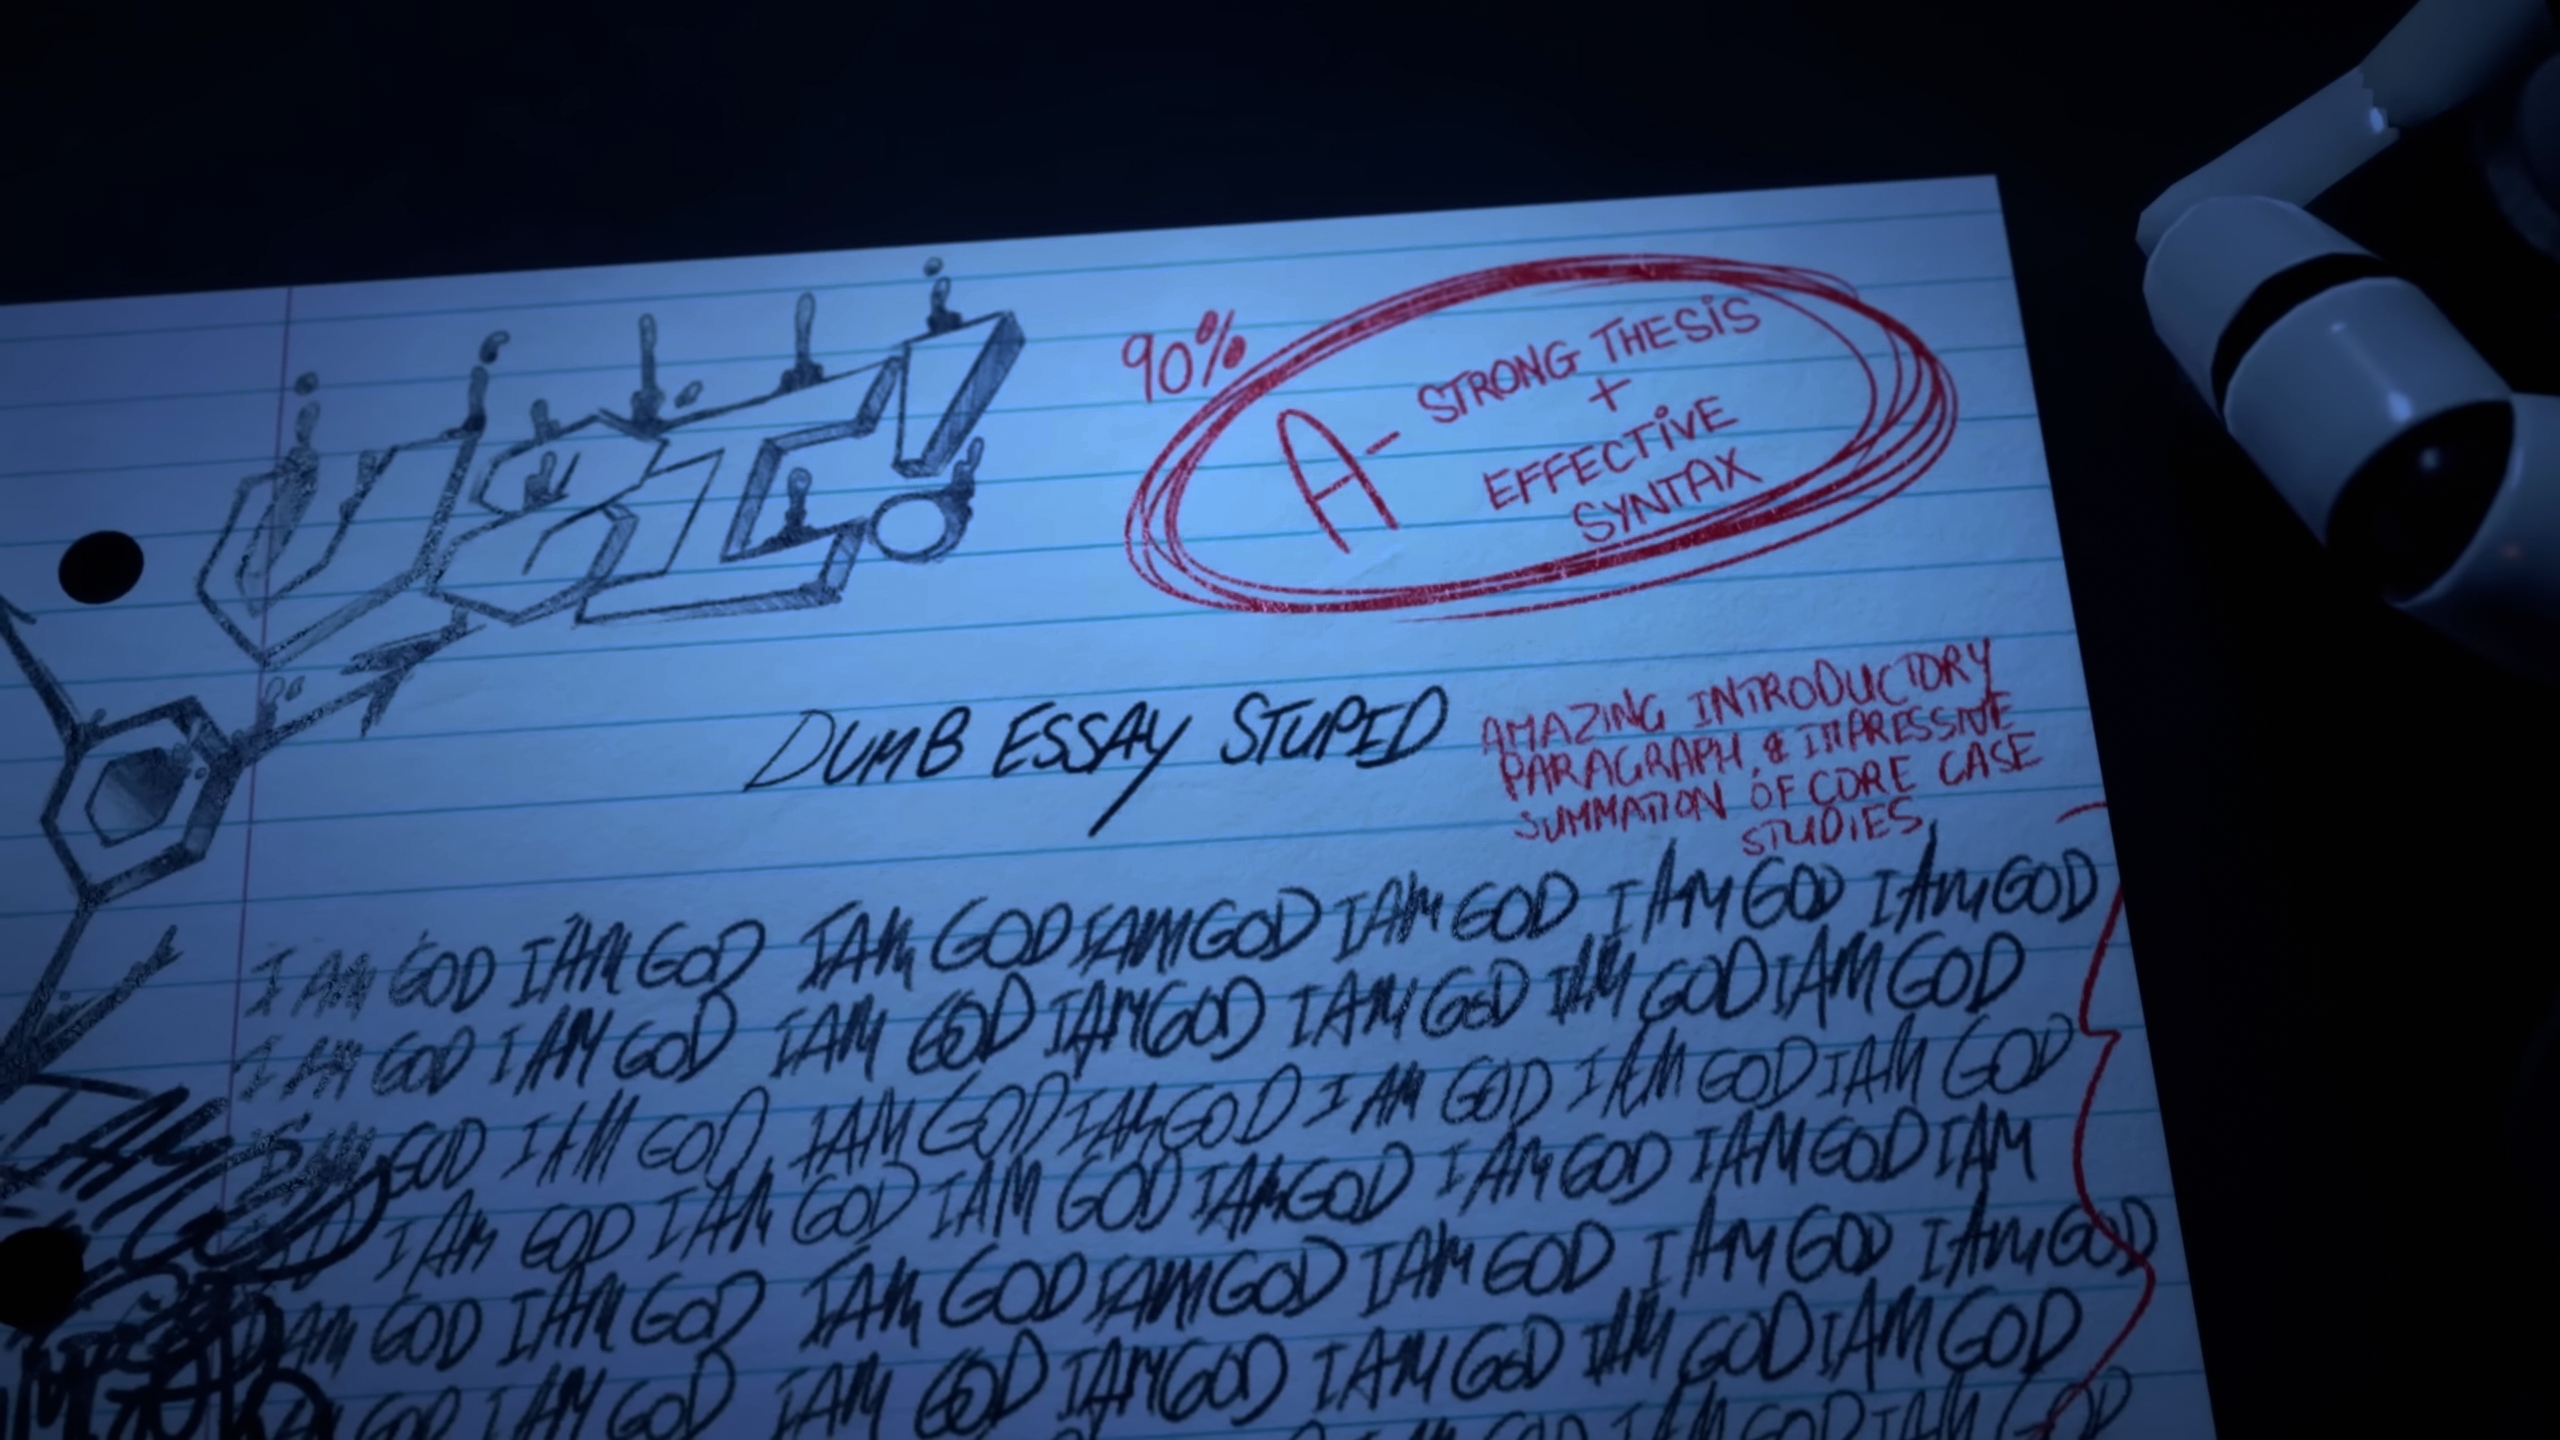 UZI!
90%
A- STRONG THESIS
+
EFFECTIVE
SYNTAX
DUMB ESSAY STUPID
AMAZING INTRODUCTORY
PARAGRAPH, & IMPRESSIVE
SUMMATION OF CORE CASE
STUDIES
I AM GOD I AM GOD I AM GOD I AM GOD I AM GOD I AM GOD I AM GOD
I AM GOD I AM GOD I AM GOD I AM GOD I AM GOD I AM GOD I AM GOD
I AM GOD I AM GOD I AM GOD I AM GOD I AM GOD I AM GOD I AM GOD
GOD I AM GOD I AM GOD I AM GOD I AM GOD I AM GOD I AM GOD I AM
I AM GOD I AM GOD I AM GOD I AM GOD I AM GOD I AM GOD I AM GOD
I AM GOD I AM GOD I AM GOD I AM GOD I AM GOD I AM GOD I AM GOD
I AM
GOD